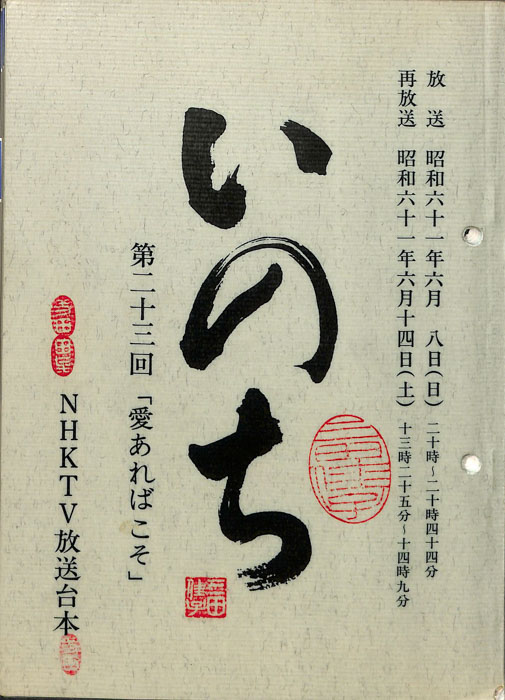 放送 昭和六十一年六月 八日(日) 二十時~二十時四十四分
再放送 昭和六十一年六月十四日(土) 十三時二十五分~十四時九分
いのち
第二十三回「愛あればこそ」
NHKTV放送台本